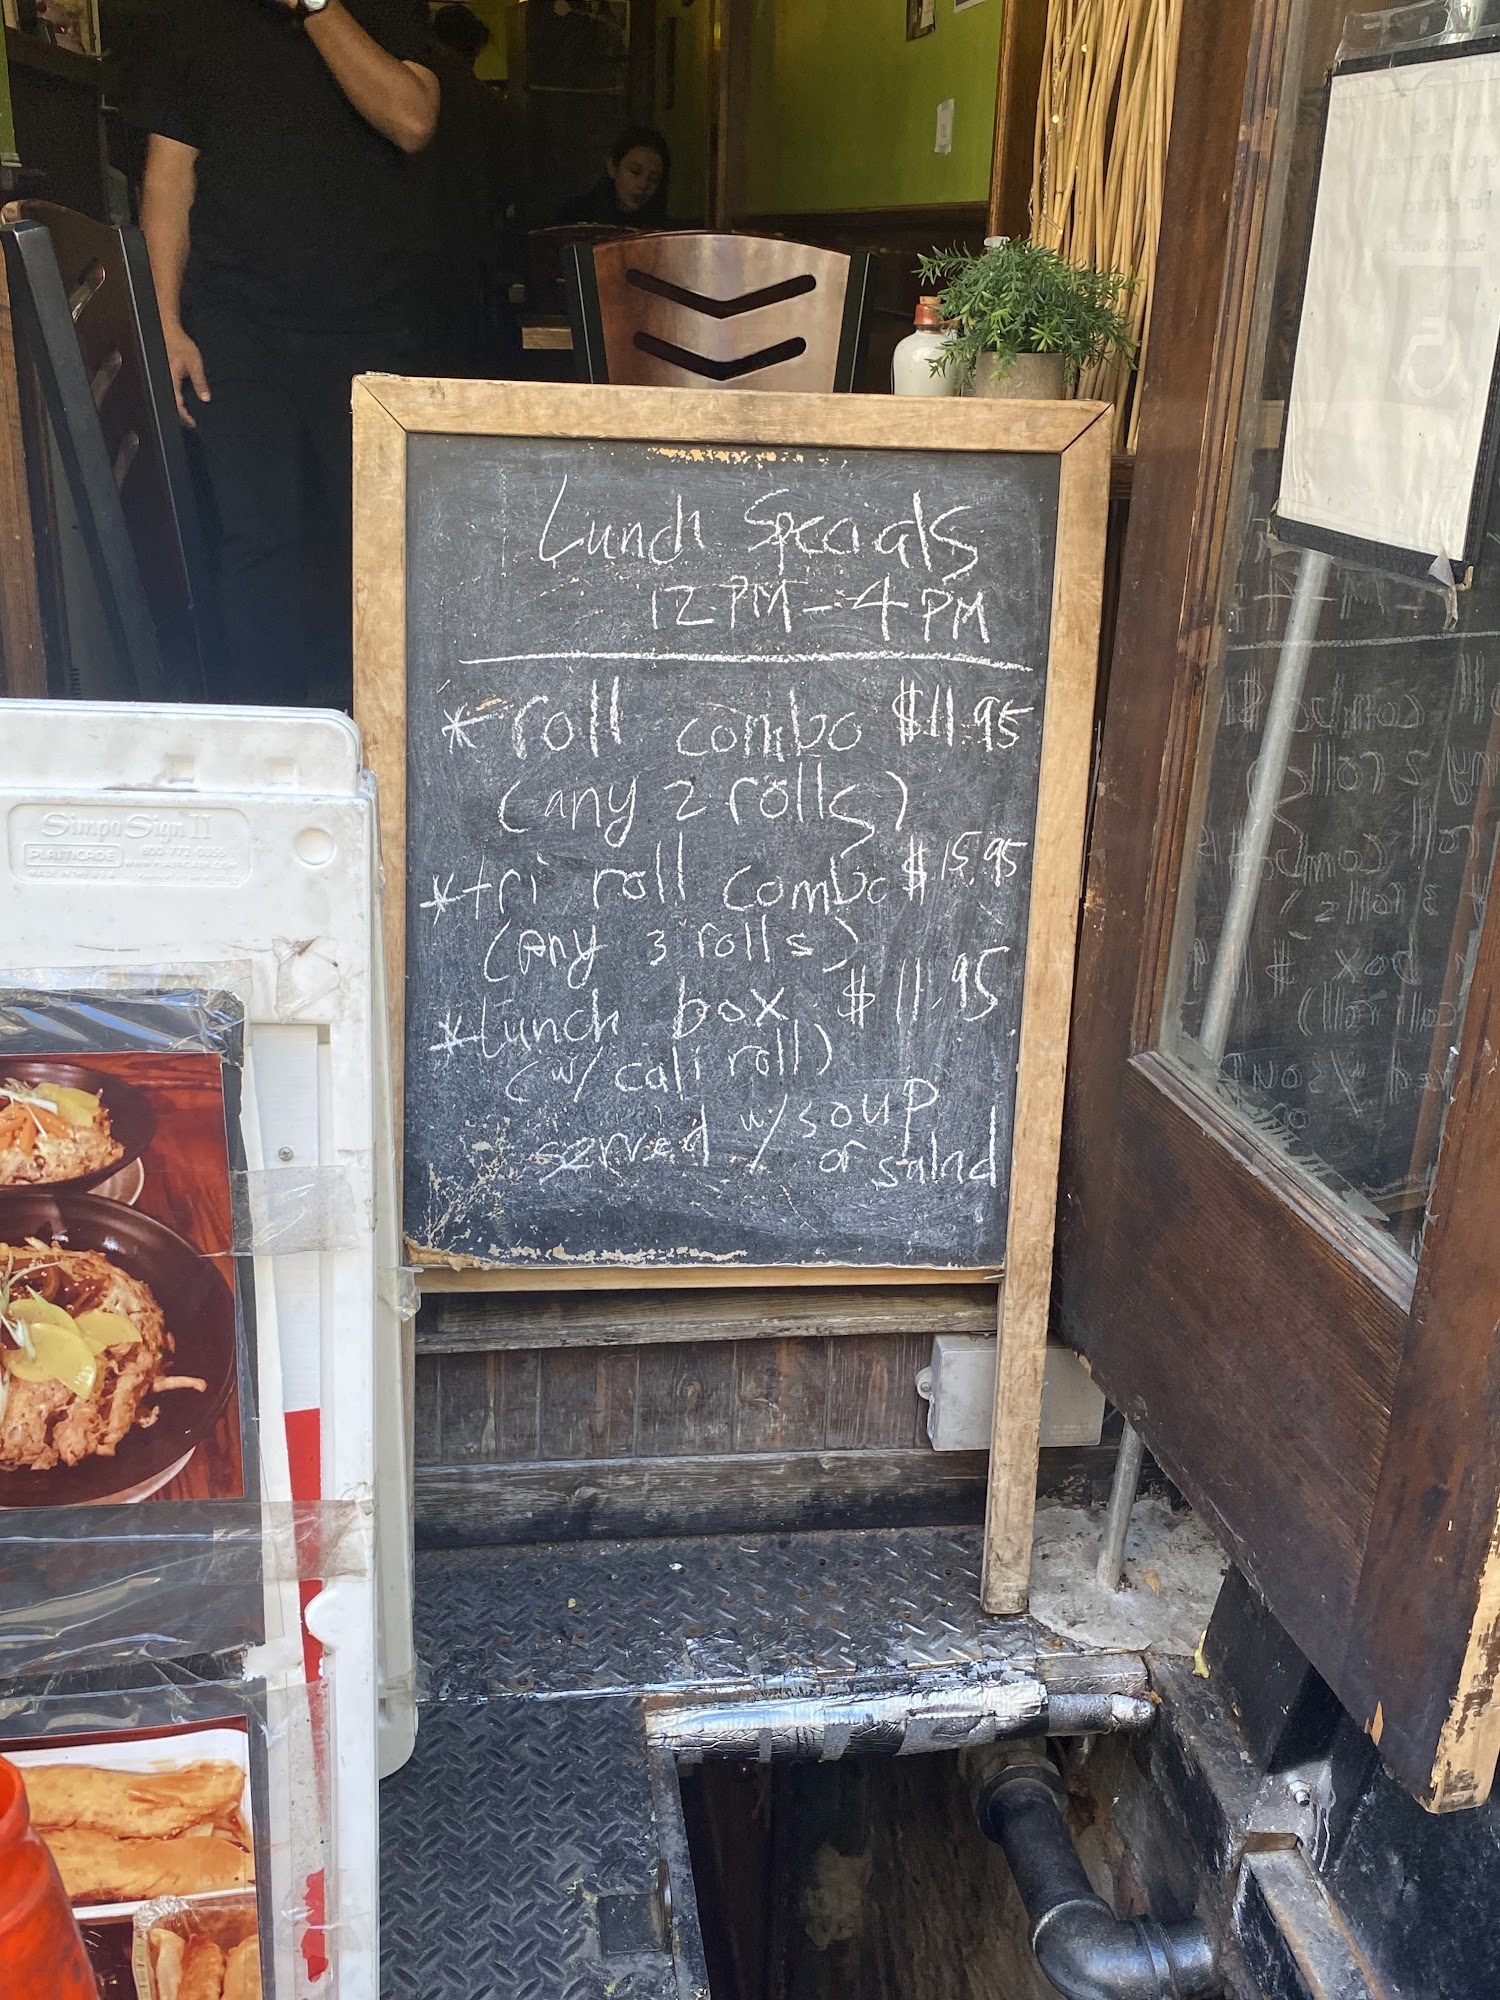 Lunch Specials
12 PM - 4 PM
* roll combo $11.95
(any 2 rolls)
* tri roll combo $15.95
(any 3 rolls)
* lunch box $11.95
(w/ cali roll)
served w/ soup
or salad
SimpoSign II
PLASTICADE
800 772-0355
MADE IN THE U.S.A.